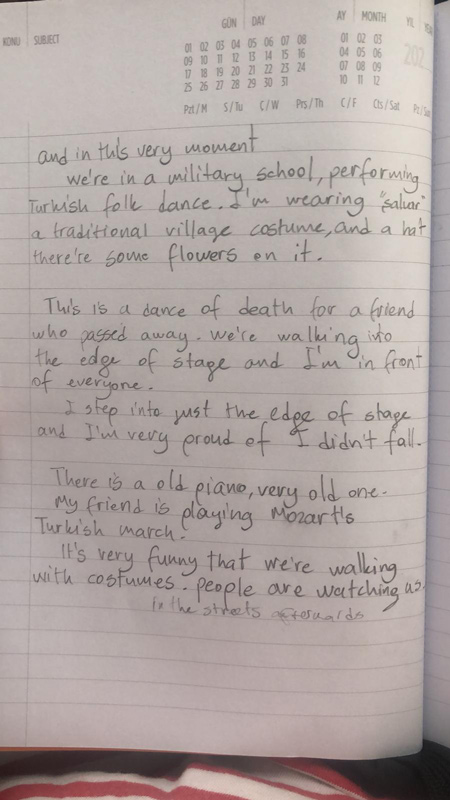 GÜN | DAY
AY | MONTH
KONU | SUBJECT
01 02 03 04 05 06 07 08
09 10 11 12 13 14 15 16
17 18 19 20 21 22 23 24
25 26 27 28 29 30 31
01 02 03
04 05 06
07 08 09
10 11 12
202
Pzt/M S/Tu C/W Prş/Th C/F Cts/Sat
and in this very moment
we're in a military school, performing
Turkish folk dance. I'm wearing "salvar"
a traditional village costume, and a hat
there're some flowers on it.
This is a dance of death for a friend
who passed away. we're walking into
the edge of stage and I'm in front
of everyone.
I step into just the edge of stage
and I'm very proud of I didn't fall.
There is a old piano, very old one.
My friend is playing Mozart's
Turkish march.
It's very funny that we're walking
with costumes. people are watching us
in the streets afterwards